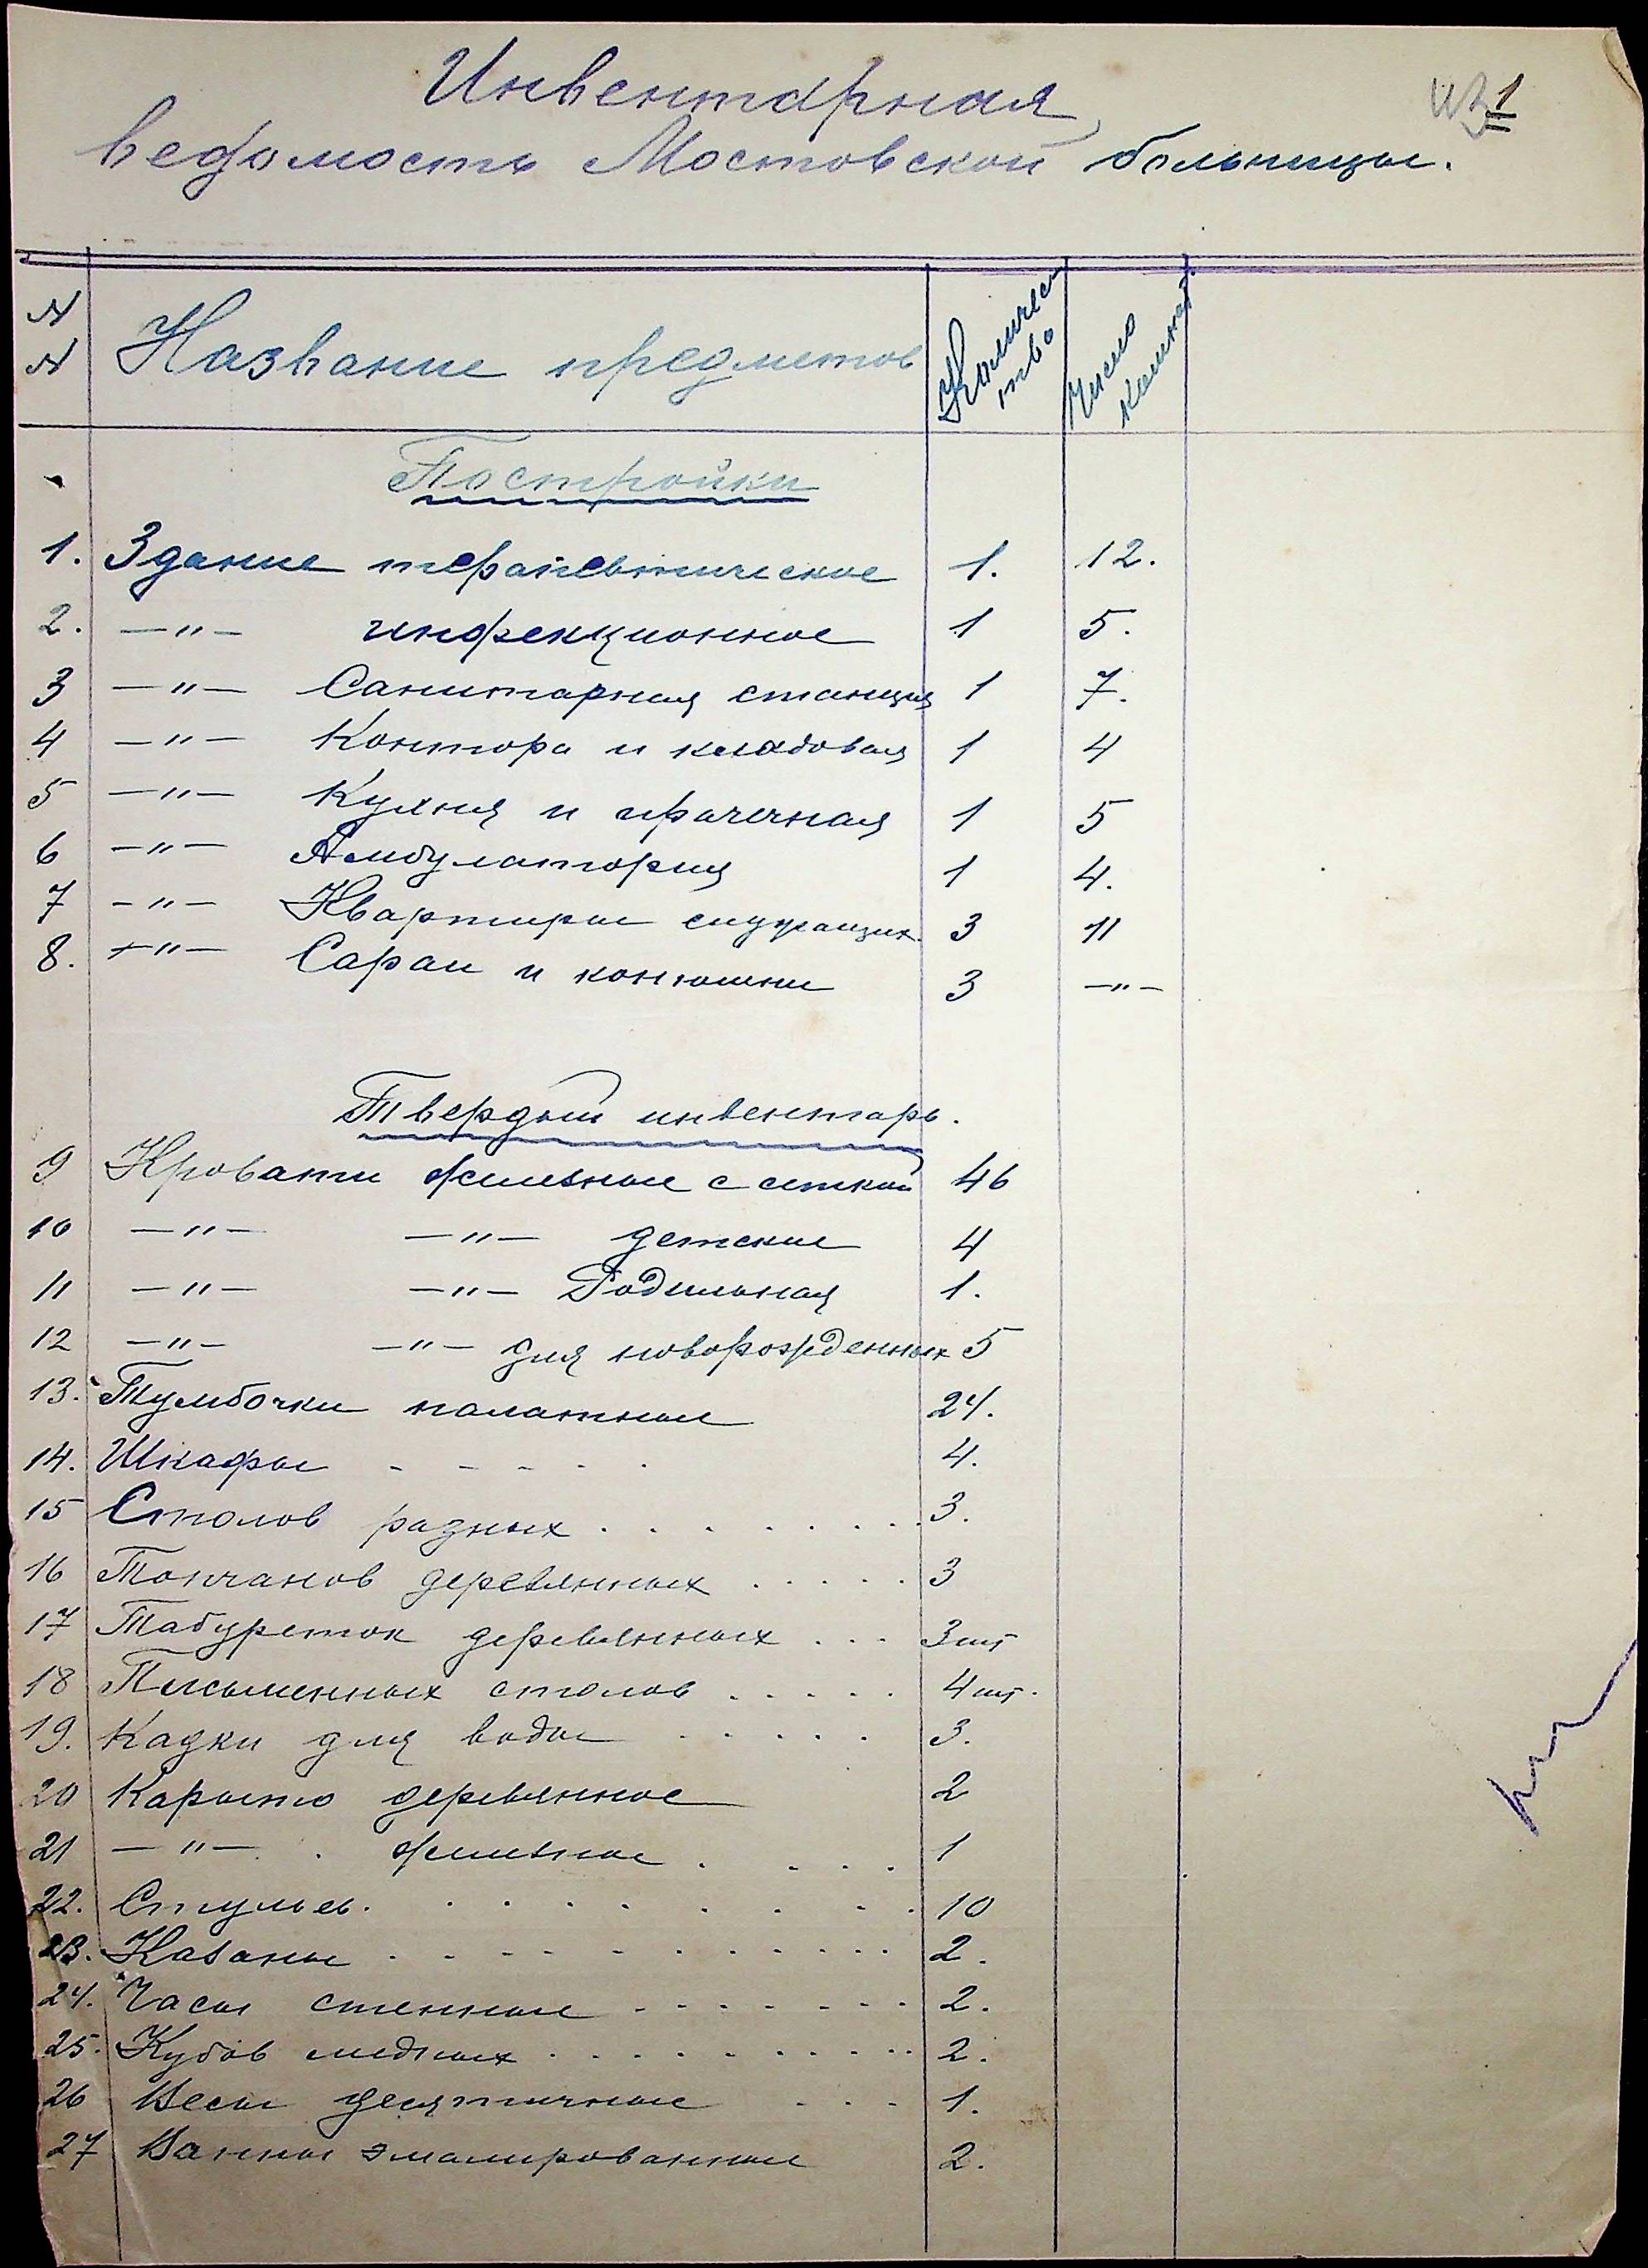 Инвентарная
ведомость Мостовской больницы.
1
N N Название предметов Количество Число комнат
Постройки
1. Здание терапевтическое 1. 12.
2. —"— инфекционное 1 5.
3 —"— Санитарная станция 1 7.
4 —"— Контора и кладовая 1 4
5 —"— Кухня и прачечная 1 5
6 —"— Амбулатория 1 4.
7 —"— Квартиры служащих. 3 11
8. —"— Сараи и конюшни 3 —"—
Твердый инвентарь.
9 Кровати железные с сеткой 46
10 —"— —"— детские 4
11 —"— —"— Родильная 1.
12 —"— —"— для новорожденных 5
13. Тумбочки палатные 24.
14. Шкафы - - - - . 4.
15 Столов разных . . . . . . . . 3.
16 Топчанов деревянных . . . . . 3
17 Табуреток деревянных . . . 3шт
18 Письменных столов . . . . . 4шт.
19. Кадки для воды . . . . . 3.
20 Карыто деревянное 2
21 —"— . железное . . . . 1
22. Стульев. . . . . . . . . 10
23. Казаны . . . . . . . . . . . 2.
24. Часы стенные - - - - - - - 2.
25. Кубов медных . . . . . . . . . . 2.
26 Весы десятичные . . . 1.
27 Ванны эмалированные 2.